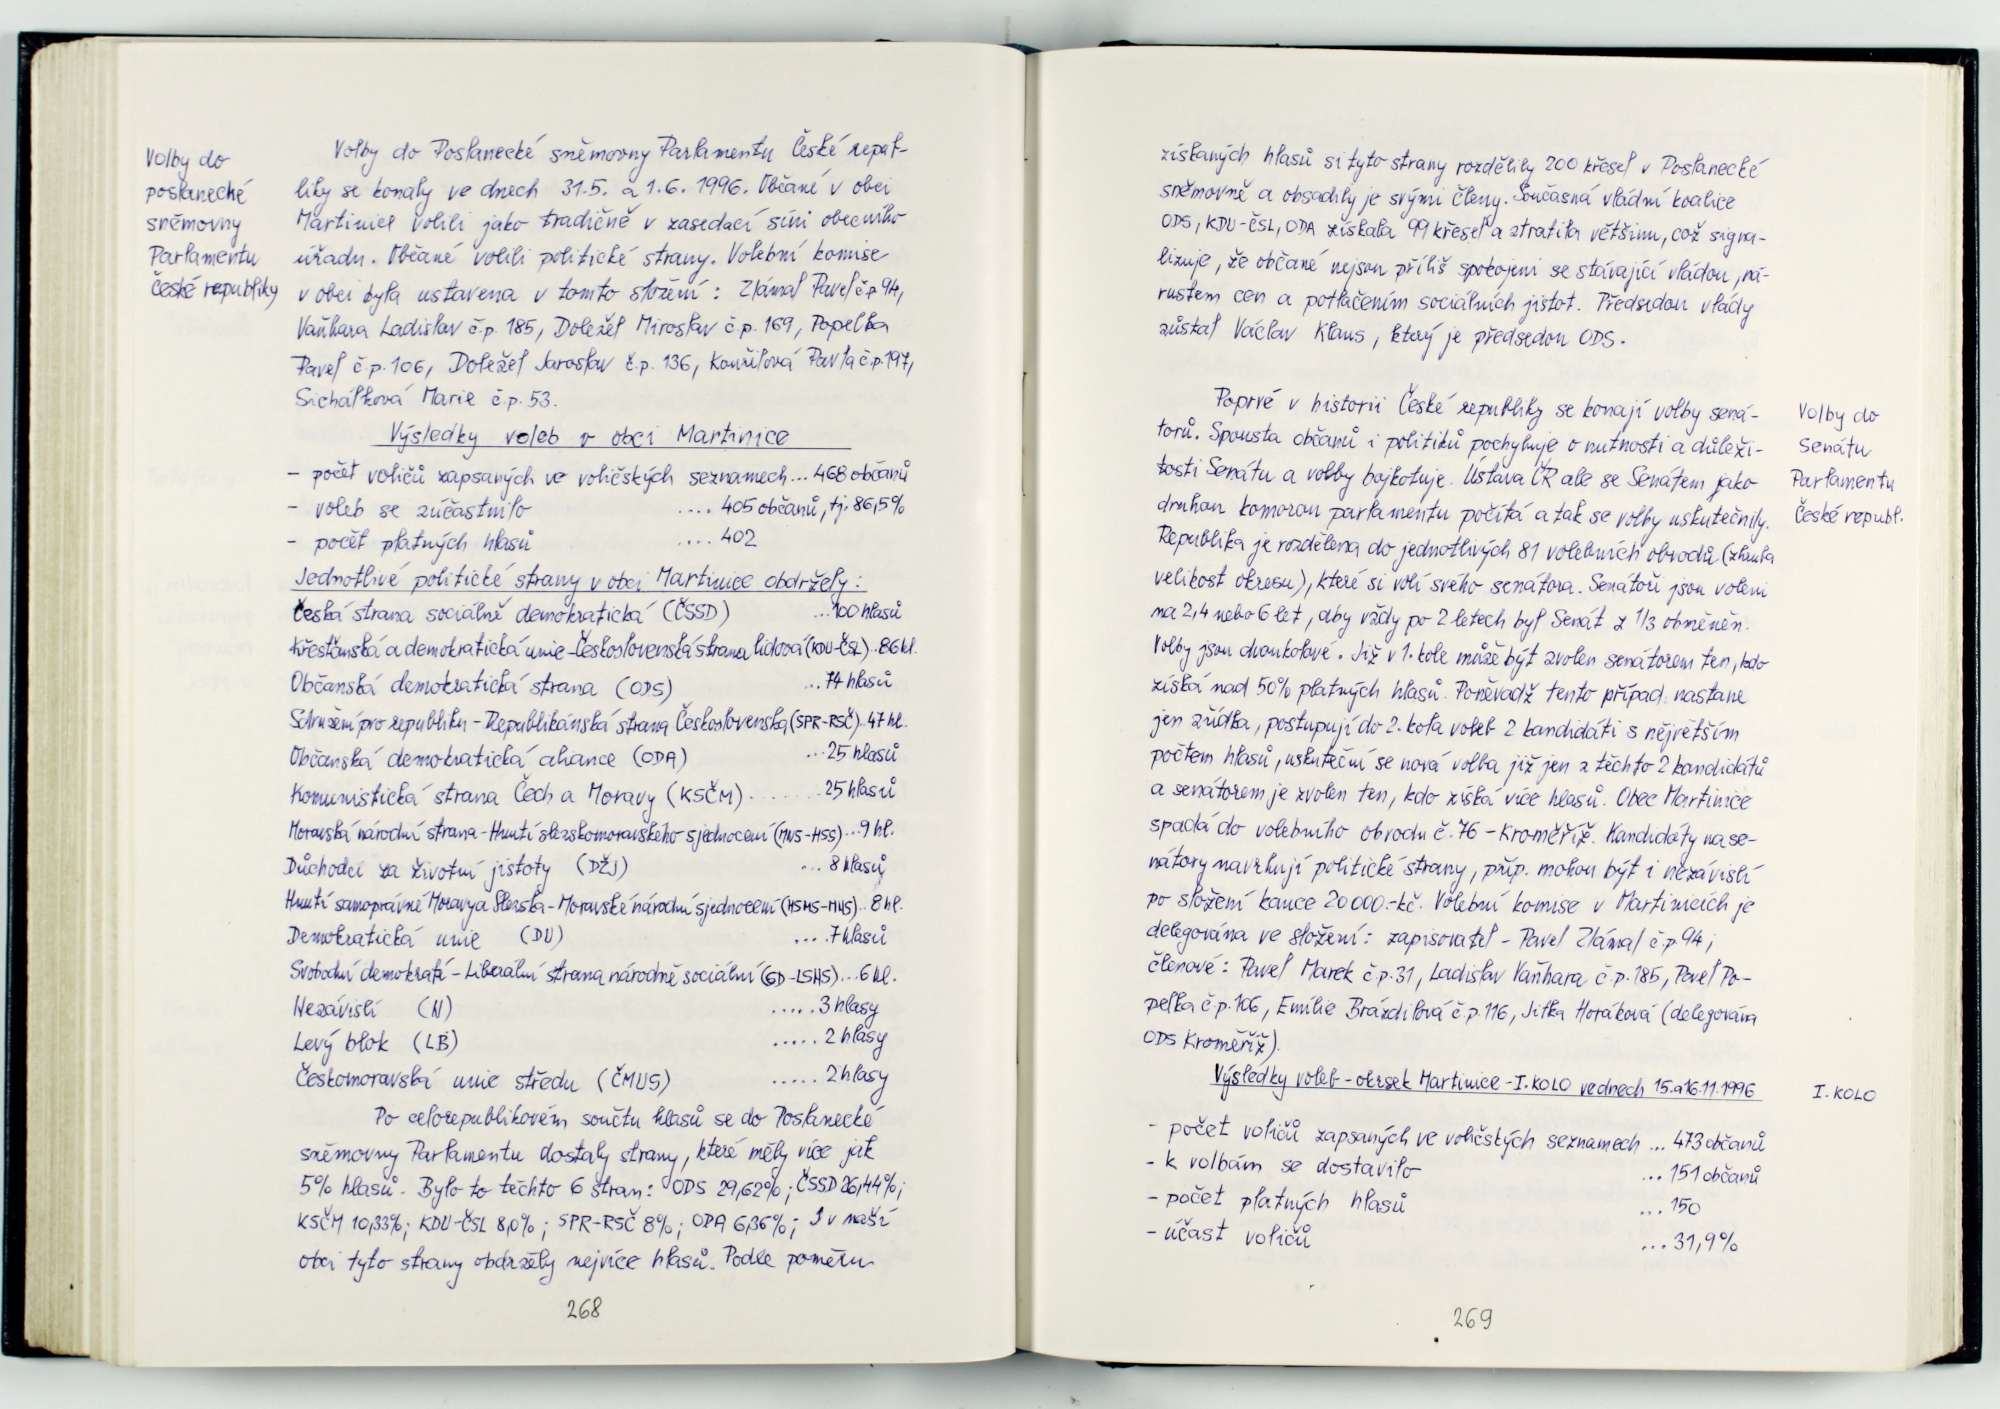 Volby do
poslanecké
sněmovny
Parlamentu
České republiky
Volby do Poslanecké sněmovny Parlamentu České repub-
liky se konaly ve dnech 31.5. a 1.6. 1996. Občané v obci
Martinice volili jako tradičně v zasedací síni obecního
úřadu. Občané volili politické strany. Volební komise
v obci byla ustavena v tomto složení: Zlámal Pavel č.p. 94,
Vaňhara Ladislav č.p. 185, Doležel Miroslav č.p. 169, Popelka
Pavel č.p. 106, Doležel Jaroslav č.p. 136, Kouřilová Pavla č.p. 197,
Sichálková Marie č.p. 53.
Výsledky voleb v obci Martinice
- počet voličů zapsaných ve voličských seznamech... 468 občanů
- voleb se zúčastnilo .... 405 občanů, tj. 86,5%
- počet platných hlasů .... 402
Jednotlivé politické strany v obci Martinice obdržely:
Česká strana sociálně demokratická (ČSSD) ...100 hlasů
Křesťanská a demokratická unie-Československá strana lidová (KDU-ČSL)..86 hl.
Občanská demokratická strana (ODS) ...74 hlasů
Sdružení pro republiku - Republikánská strana Československa (SPR-RSČ). 47 hl.
Občanská demokratická aliance (ODA) ...25 hlasů
Komunistická strana Čech a Moravy (KSČM)........25 hlasů
Moravská národní strana-Hnutí slezskomoravského sjednocení (MNS-HSS)...9 hl.
Důchodci za životní jistoty (DŽJ) ...8 hlasů
Hnutí samosprávné Moravy a Slezska-Moravské národní sjednocení (HSMS-MNS)..8 hl.
Demokratická unie (DU) ....7 hlasů
Svobodní demokraté - Liberální strana národně sociální (SD-LSNS)...6 hl.
Nezávislí (N) .....3 hlasy
Levý blok (LB) .....2 hlasy
Českomoravská unie středu (ČMUS) .....2 hlasy
Po celorepublikovém součtu hlasů se do Poslanecké
sněmovny Parlamentu dostaly strany, které měly více jak
5% hlasů. Bylo to těchto 6 stran: ODS 29,62%; ČSSD 26,44%;
KSČM 10,33%; KDU-ČSL 8,0%; SPR-RSČ 8%; ODA 6,36%; I v naší
obci tyto strany obdržely nejvíce hlasů. Podle poměru
268
získaných hlasů si tyto strany rozdělily 200 křesel v Poslanecké
sněmovně a obsadily je svými členy. Současná vládní koalice
ODS, KDU-ČSL, ODA získala 99 křesel a ztratila většinu, což signa-
lizuje, že občané nejsou příliš spokojeni se stávající vládou, ná-
rustem cen a potlačením sociálních jistot. Předsedou vlády
zůstal Václav Klaus, který je předsedou ODS.
Poprvé v historii České republiky se konají volby sená-
torů. Spousta občanů i politiků pochybuje o nutnosti a důleži-
tosti Senátu a volby bojkotuje. Ústava ČR ale se Senátem jako
druhou komorou parlamentu počítá a tak se volby uskutečnily.
Republika je rozdělena do jednotlivých 81 volebních obvodů (zhruba
velikost okresu), které si volí svého senátora. Senátoři jsou voleni
na 2,4 nebo 6 let, aby vždy po 2 letech byl Senát z 1/3 obměněn.
Volby jsou dvoukolové. Již v 1. kole může být zvolen senátorem ten, kdo
získá nad 50% platných hlasů. Poněvadž tento případ nastane
jen zřídka, postupují do 2. kola voleb 2 kandidáti s největším
počtem hlasů, uskuteční se nová volba již jen z těchto 2 kandidátů
a senátorem je zvolen ten, kdo získá více hlasů. Obec Martinice
spadá do volebního obvodu č. 76 - Kroměříž. Kandidáty na se-
nátory navrhují politické strany, příp. mohou být i nezávislí
po složení kauce 20 000.-kč. Volební komise v Martinicích je
delegována ve složení: zapisovatel - Pavel Zlámal č.p. 94;
členové: Pavel Marek č.p. 31, Ladislav Vaňhara č.p. 185, Pavel Po-
pelka č.p. 106, Emílie Brázdilová č.p. 116, Jitka Horáková (delegována
ODS Kroměříž).
Volby do
Senátu
Parlamentu
České republ.
Výsledky voleb - okrsek Martinice - I. KOLO ve dnech 15. a 16.11.1996
I. KOLO
- počet voličů zapsaných ve voličských seznamech ... 473 občanů
- k volbám se dostavilo ... 151 občanů
- počet platných hlasů ... 150
- účast voličů ... 31,9%
269